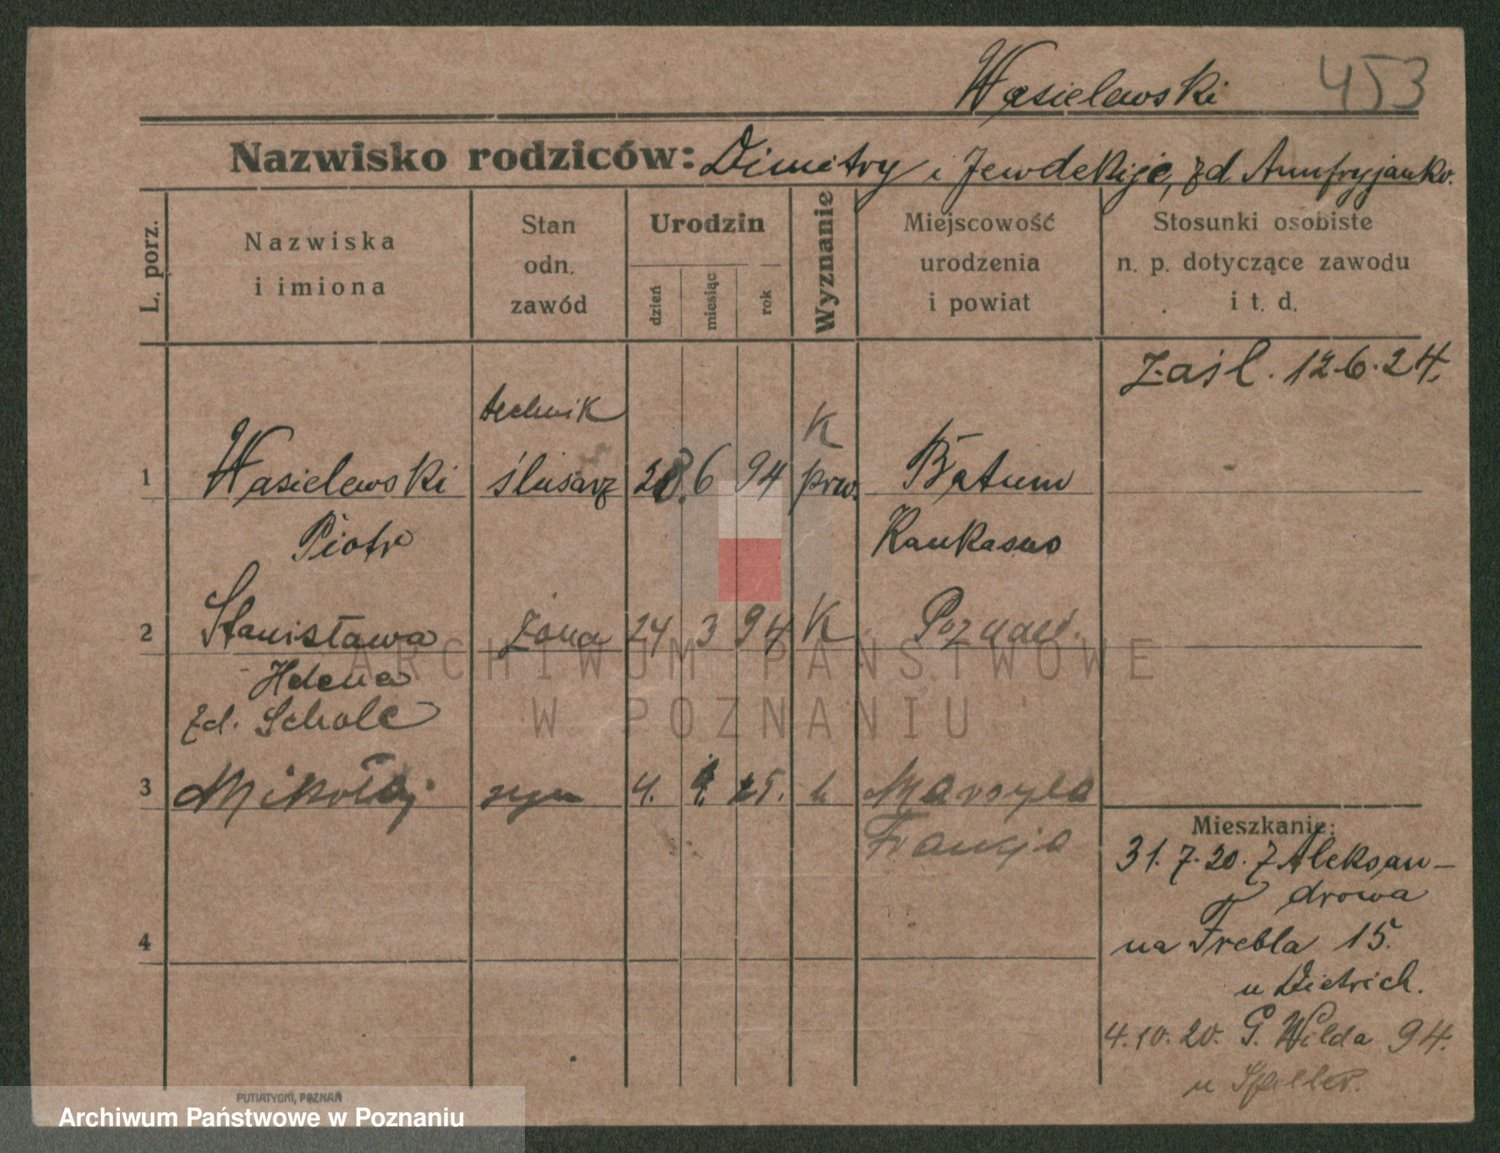 Wasielewski 453
Nazwisko rodziców: Dimitry i Jewdekije, zd
L. porz.
Nazwiska i imiona
Stan odn. zawód
Urodzin
dzień miesiąc rok
Wyznanie
Miejscowość urodzenia i powiat
Stosunki osobiste n. p. dotyczące zawodu i t. d.
zaśl. 12.6.24.
technik K
1 Wasielewski ślusarz 28. 6 94 prw. Batum
Piotr Kaukasus
2 Stanisława żona 24 3 94 K Poznań.
Helena
zd. Scholc
3 Mikołaj syn 4. 4. 25. k Marsylia
Francja
Mieszkanie:
31.7.20. z Aleksan-
drowa
4
na Trebla 15.
u Dietrich.
4.10.20. G. Wilda 94.
PUTIATYCKI, POZNAŃ
ARCHIWUM PAŃSTWOWE
W POZNANIU
Archiwum Państwowe w Poznaniu